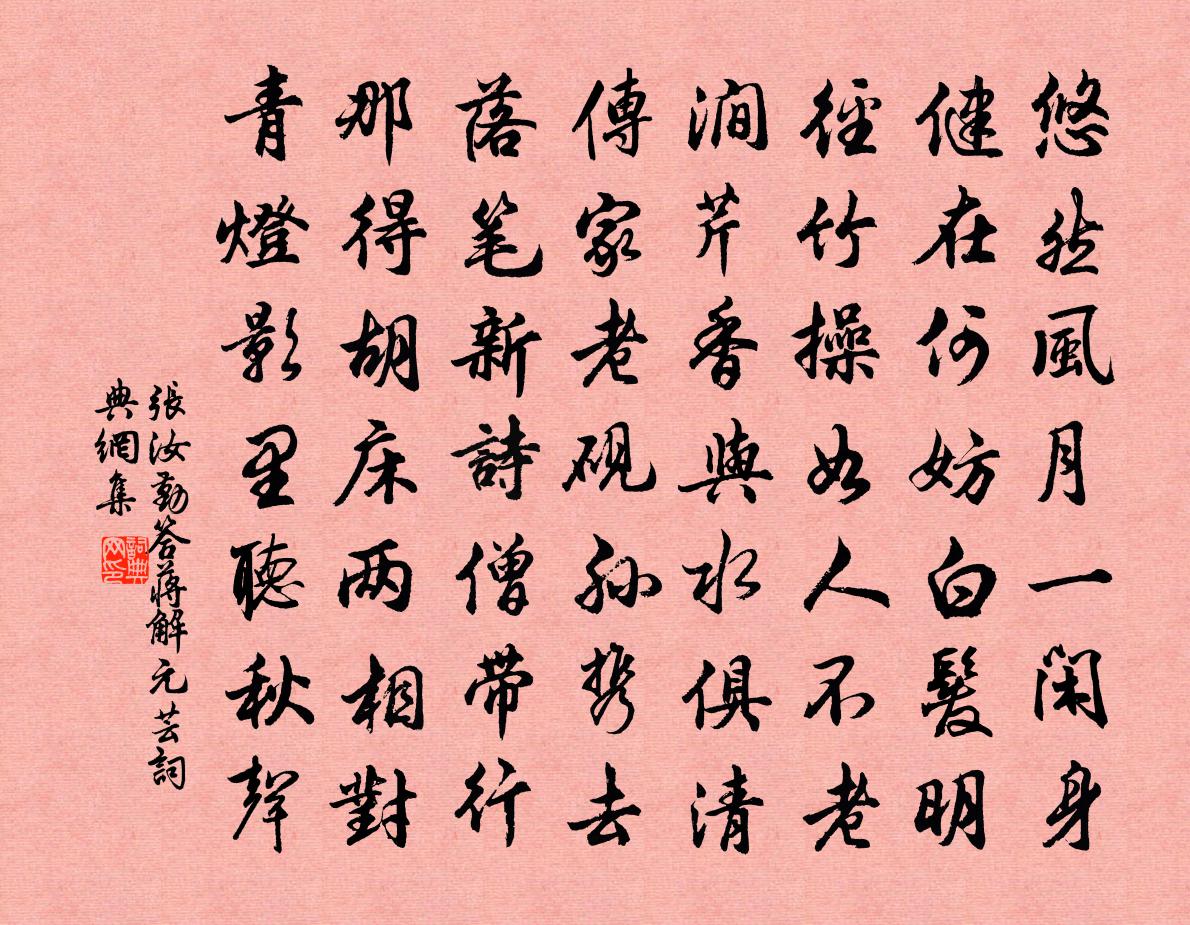 悠然風月一閑身
健在何妨白髮明
徑竹操如人不老
澗芹香與水俱清
傳家老硯孫携去
落笔新詩僧帶行
那得胡床两相對
青燈影里聽秋聲
張汝勤答蔣解元芸詞
典網集
詞典
网印